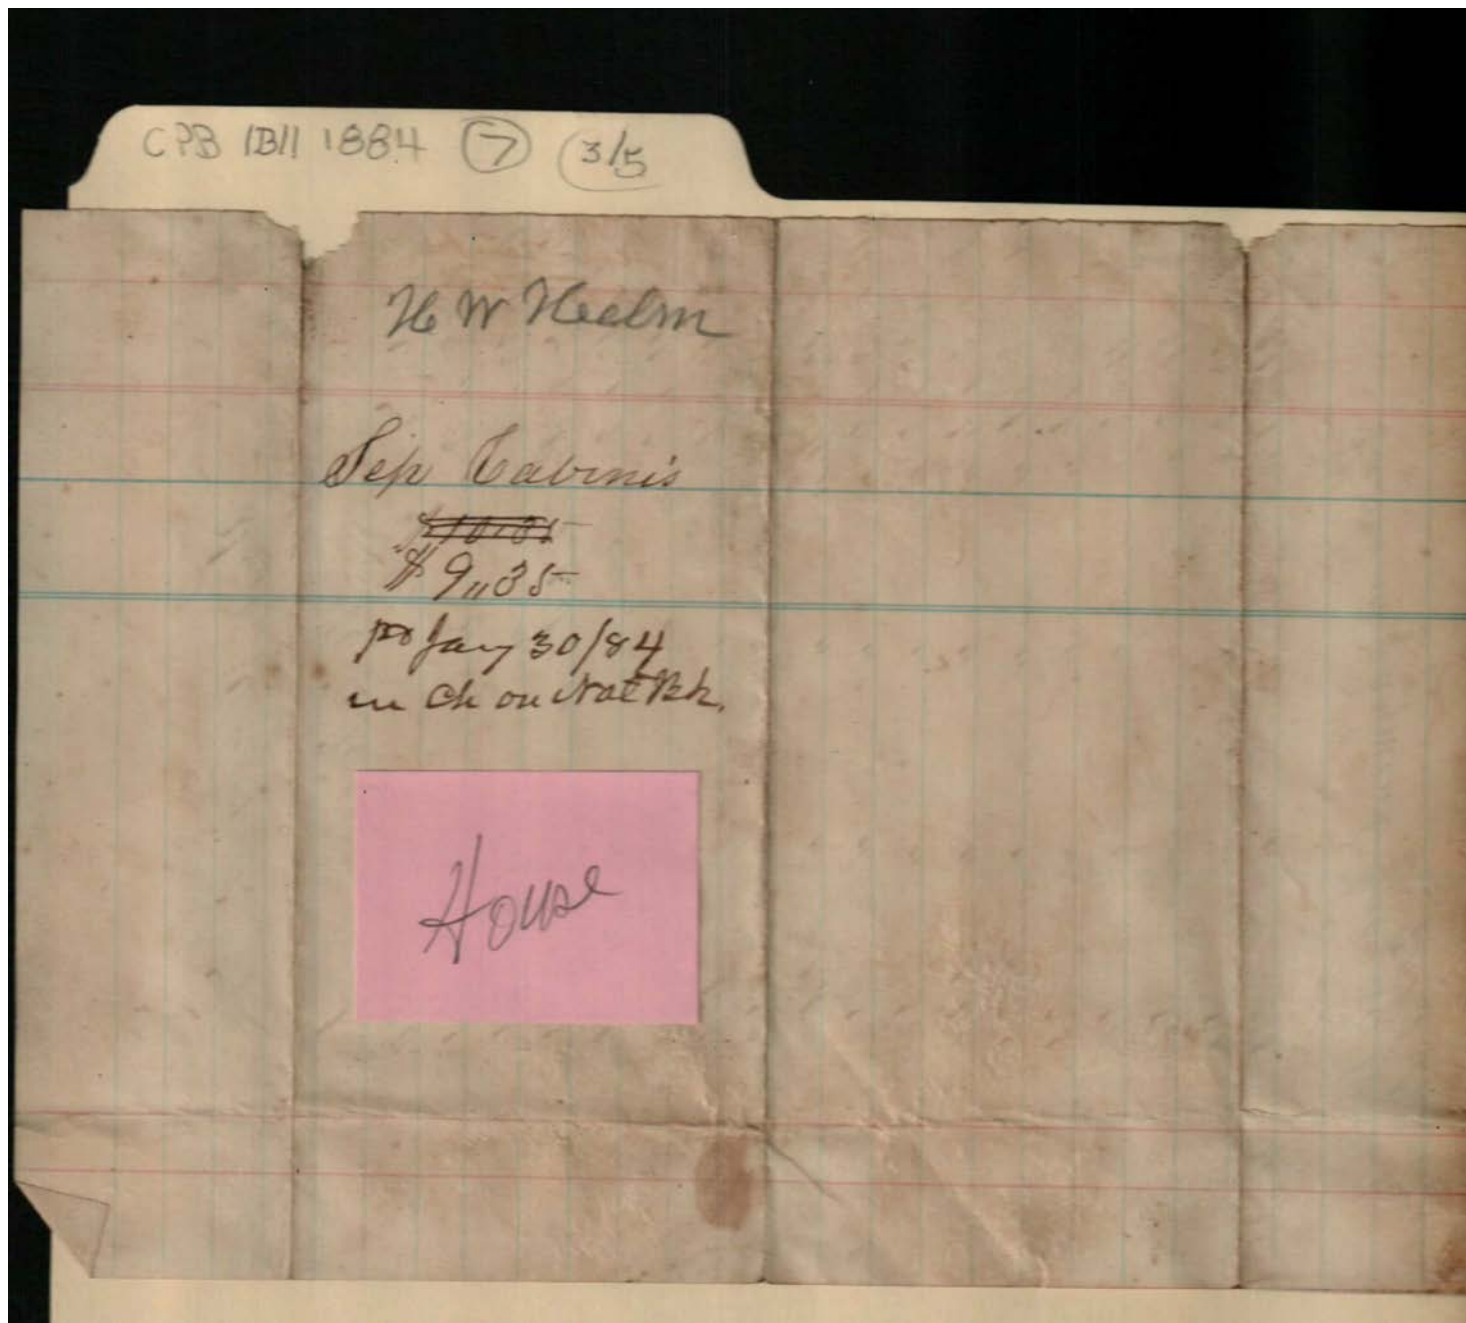 CPB IBII 1884 7 3/5
H W Heelm
Sep Cabinis
$10.85
$9,,35
pd Jany 30/84
in Ch on Nat Bk.
House